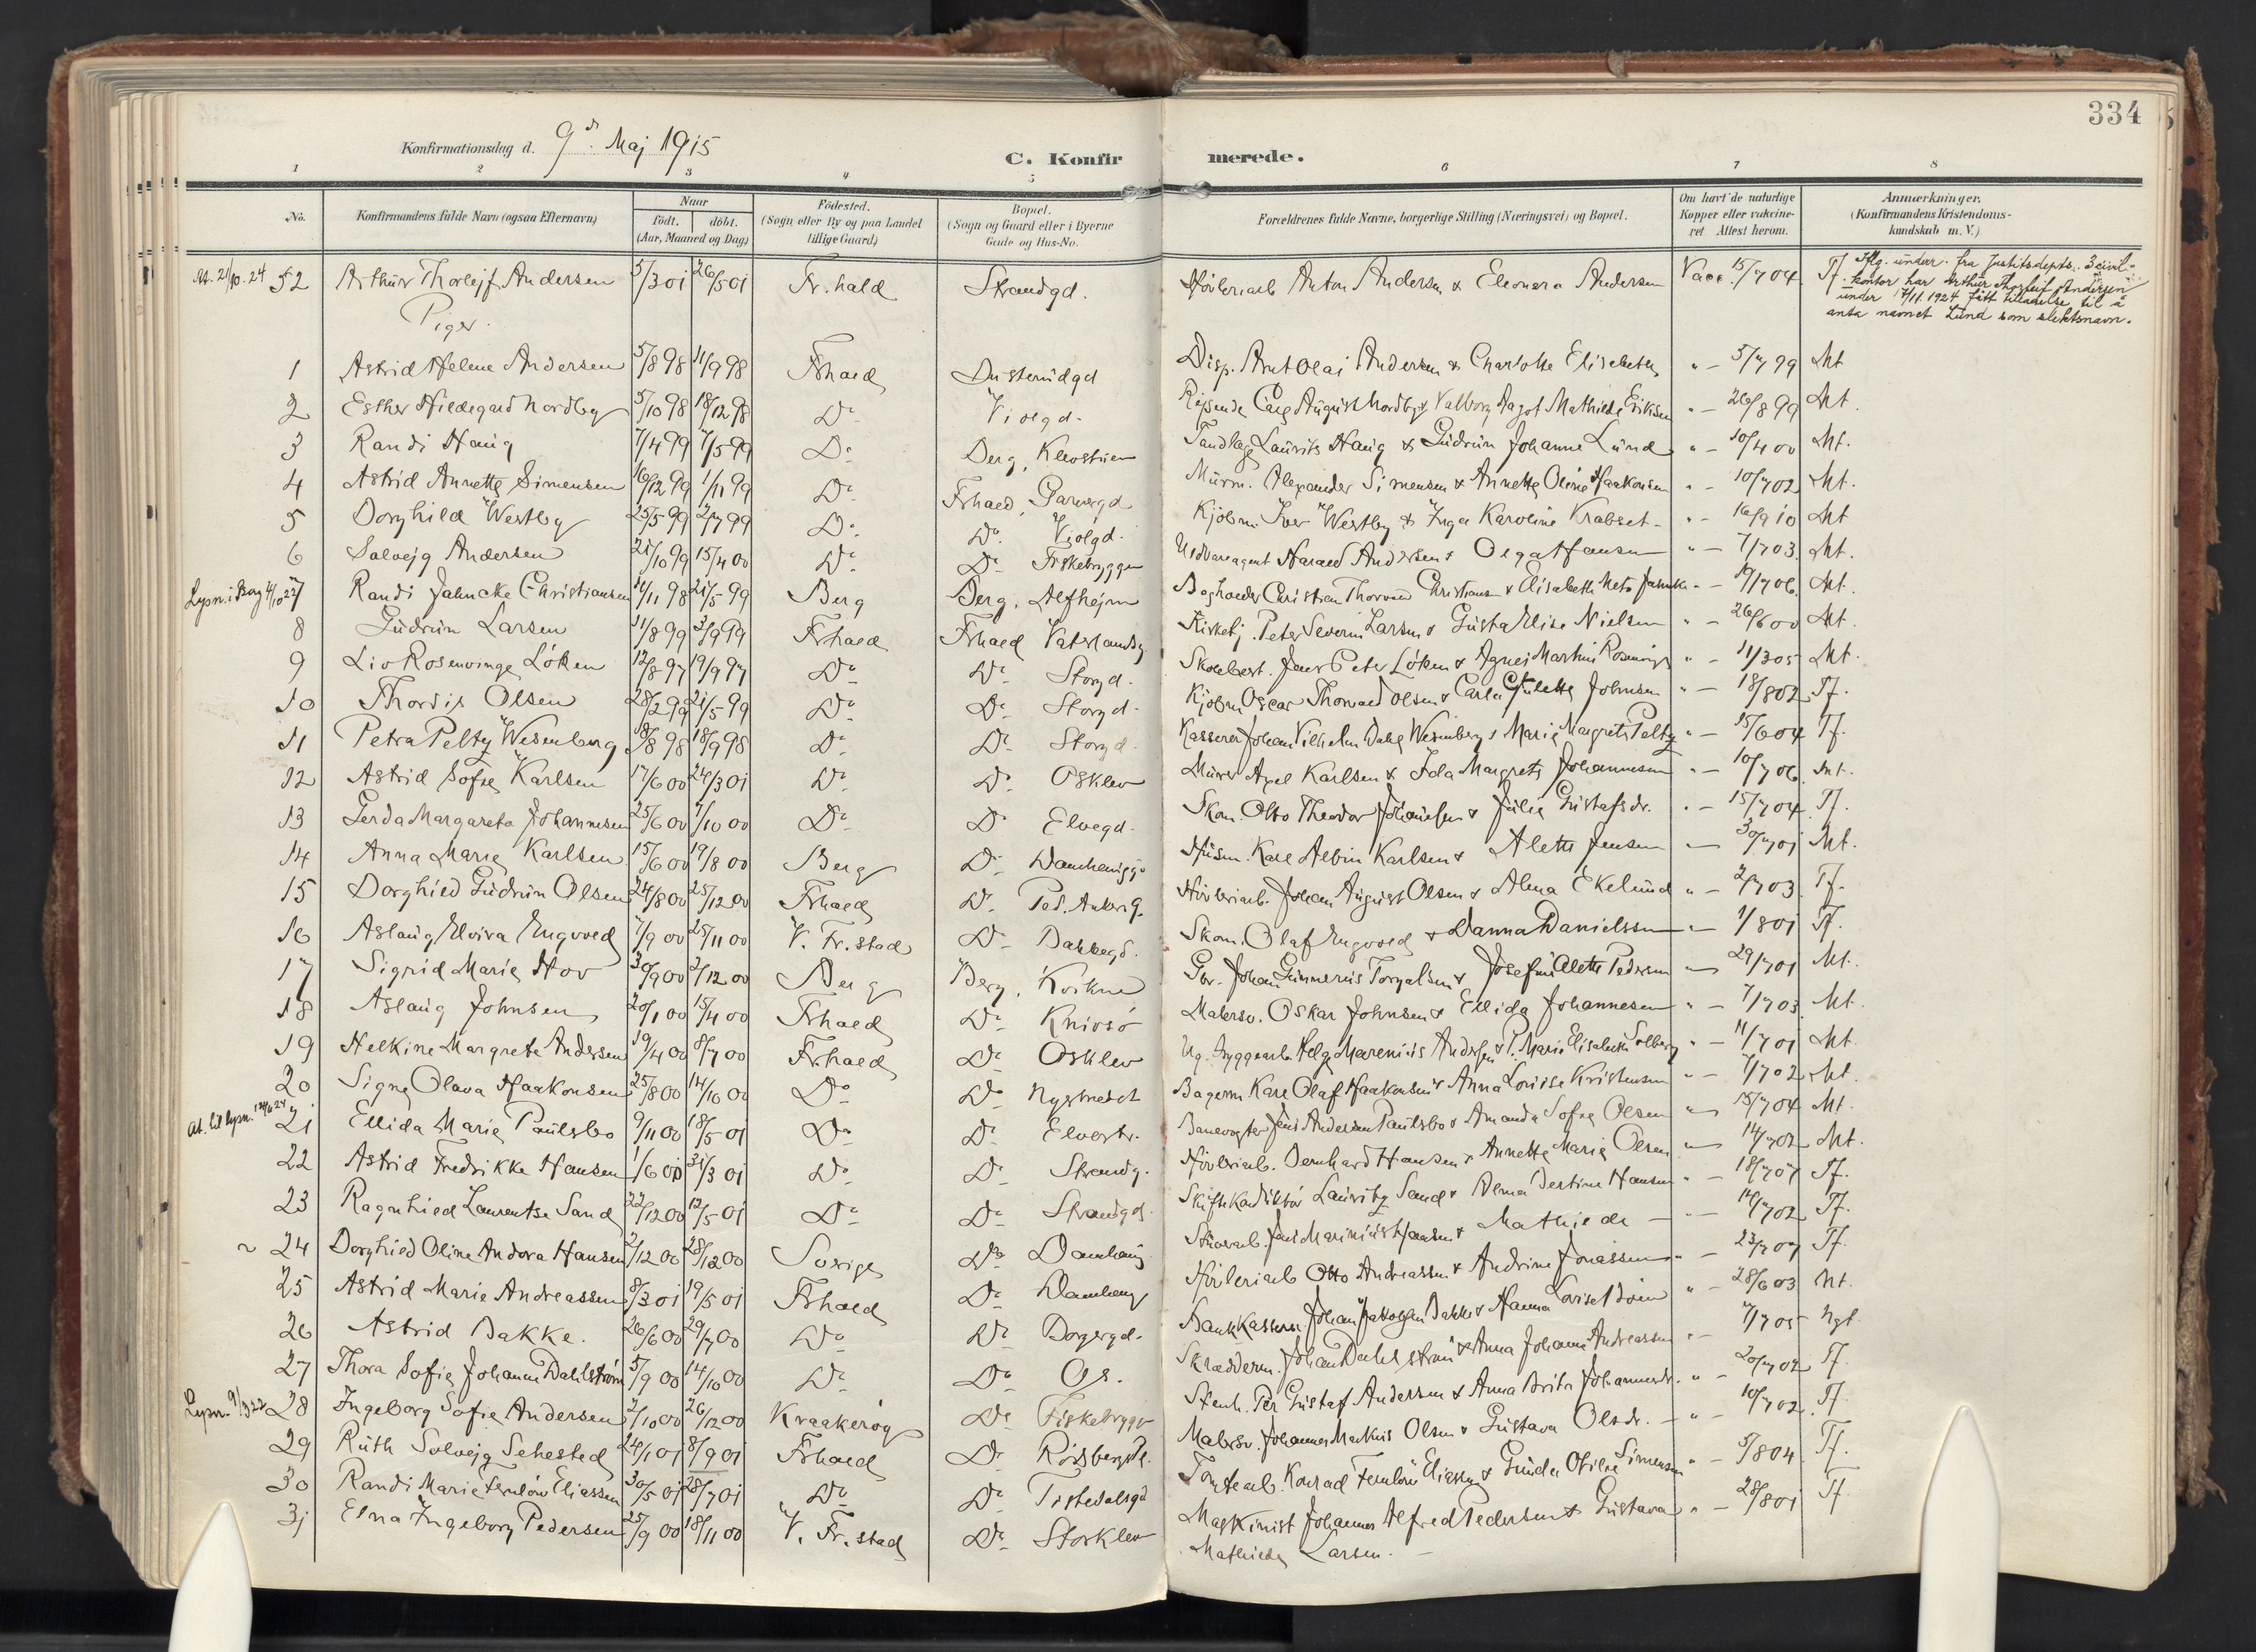 334
Konfirmationsdag d. 9d. Maj 1915
C. Konfirmerede.
1 2 3 4 5 6 7 8
No. Konfirmandens fulde Navn (ogsaa Efternavn) Naar født. døbt. (Aar, Maaned og Dag) Fødested. (Sogn eller By og paa Landet tillige Gaard) Bopæl. (Sogn og Gaard eller i Byerne Gade og Hus-No. Forældrenes fulde Navne, borgerlige Stilling (Næringsvei) og Bopæl. Om havt de naturlige Kopper eller vakcineret Attest herom. Anmærkninger. (Konfirmandens Kristendomskundskab m. V.)
At. 21/10.24 52 Arthur Thorlejf Andersen 5/3 01 26/5 01 Fr.hald Strandgd. Høvleriarb Anton Andersen & Eleonora Andersen Vacc. 15/7 04 Tf. Iflg. underr. fra Justitsdepts. 3 civilkontor har Arthur Thorleif Andersen under 17/11 1924 fått tilladelse til å anta navnet Lund som slektsnavn.
Piger.
1 Astrid Helene Andersen 5/8 98 11/9 98 Frhald Busterudgd Disp. Arnt Olai Andersen & Charlotte Elisabeth " - 5/7 99 Mt
2 Esther Hildegard Nordby 5/10 98 18/12 98 Do Violgd. Rejsende Carl August Nordby & Valborg Dagot Mathilde Eriksen " - 26/8 99 Mt.
3 Randi Haug 7/4 99 7/5 99 Do Berg, Tandlæge Laurits Haug & Gudrun Johanne Lund " - 10/4 00 Mt.
4 Astrid Annette Simensen 16/12 99 1/11 99 Do Frhald, Garvergd Murm. Alexander Simensen & Annette Oline Haakonsen " - 10/7 02 Mt.
5 Borghild Westby 25/5 99 2/7 99 Do Do Violgd. Kjøbm. Iver Westby & Inga Karoline Krabset " - 16/9 10 Mt
6 Solvejg Andersen 21/10 99 15/4 00 Do Do Fiskebryggen Uldvareagent Harald Andersen & Olga Hansen " - 7/7 03. Mt.
Lysn. i Berg 4/10 22 7 Randi Jahncke Christiansen 11/11 98 21/5 99 Berg Berg, Alfhejm Boghandler Christian Thorvald Christiansen & Elisabeth Meta Jahncke " - 19/7 06. Mt.
8 Gudrun Larsen 11/8 99 3/9 99 Frhald Frhald Vaterlandsg Kirketj. Peter Severin Larsen & Gusta Elise Nielsen " - 26/6 00 Mt.
9 Liv Rosenvinge Løken 12/8 97 19/9 97 Do Do Storgd. Skolebest. Jens Peter Løken & Agnes Martine Rosenvinge " - 11/3 05 Mt.
10 Thordis Olsen 28/2 99 21/5 99 Do Do Storgd. Kjøbm Oscar Thorvald Olsen & Carla Julette Johnsen " - 18/8 02 Tf.
11 Petra Peltz Wesenberg 18/8 98 18/9 98 Do Do Storgd. Kasserer Johan Vilhelm Dahl Wesenberg & Marie Margrete Peltz " - 15/6 04 Tf.
12 Astrid Sofie Karlsen 17/6 00 24/3 01 Do Do Osklev Murer Axel Karlsen & Ida Margrete Johannesen " - 10/7 06 Mt.
13 Gerda Margareta Johannesen 25/6 00 7/10 00 Do Do Elvegd. Skom. Otto Theodor Johannesen & Julie Gustafsdr. " - 15/7 04 Tf.
14 Anna Marie Karlsen 15/6 00 19/8 00 Berg Do Husm. Karl Albin Karlsen & Alette Jensen " - 30/7 01 Mt.
15 Borghild Gudrun Olsen 24/8 00 25/12 00 Frhald Do Ped. Ankers g. Høvleriarb. Johan August Olsen & Alma Ekelund " - 2/7 03. Tf.
16 Aslaug Elvira Engvold 7/9 00 25/11 00 V. Fr.stad Do Bakkegd. Skom. Olaf Engvold & Hanna Danielssen " - 1/8 01 Tf.
17 Sigrid Marie Hov 30/9 00 2/12 00 Berg Berg, Gbr. Johan Gunnerius Torgalsen & Josefine Alette Pedersen " - 29/7 01 Mt.
18 Aslaug Johnsen 20/1 00 15/4 00 Frhald Do Knivsö Malersv. Oskar Johnsen & Ellida Johannesen " - 7/7 03. Mt.
19 Helkine Margrete Andersen 19/4 00 8/7 00 Frhald Do Osklev Ug. Helge Marenius Andersen & P. Marie Elisabeth Solberg " - 11/7 01 Mt.
20 Signe Olava Haakonsen 25/8 00 14/10 00 Do Do Bagerm Karl Olaf Haakonsen & Anna Lovise Kristensen " - 7/7 02 Mt.
At. til lysn. 21 Ellida Marie Paulsbo 9/11 00 18/5 01 Do Do Elvestr. Banevogter Jens Andersen Paulsbo & Amanda Sofie Olsen " - 15/7 04 Mt.
22 Astrid Fredrikke Hansen 1/6 00 31/3 01 Do Do Strandg. Høvleriarb. Bernhard Hansen & Annette Marie Olsen " - 14/7 02 Mt.
23 Ragnhild Laurentse Sand 22/12 00 12/5 01 Do Do Strandgd. Laurits Sand & Alma Bertine Hansen " - 18/7 07 Tf.
24 Borghild Oline Andora Hansen 2/12 00 28/12 00 Sverige Do Damhaug Jens Marinius Hansen & Mathilde - " - 14/7 02 Tf.
25 Astrid Marie Andreassen 8/3 01 19/5 01 Frhald Do Damhaug Høvleriarb Otto Andreassen & Andrine Jonassen " - 23/7 07 Tf.
26 Astrid Bakke. 26/6 00 29/7 00 Do Do Borgergd. Bankkasserer Johan Jakobsen Bakke & Hanna Lovise " - 28/6 03 Mt.
27 Thora Sofie Johanne Dahlstrøm 5/9 00 14/10 00 Do Do Os. Skrædderm. Johan Dahlstrøm & Anna Johanne Andreassen " - 7/7 05 Ngt.
Lysn. 9/3 22 28 Ingeborg Sofie Andersen 2/10 00 26/12 00 Kraakerøy Do Fiskebrygge Stenh. Per Gustaf Andersen & Anna Brita Johannesdr. " - 20/7 02 Tf.
29 Ruth Solvejg Sehested 24/1 01 8/9 01 Frhald Do Rødsberg Pl. Malersv. Johannes Markus Olsen & Gustava Olsdr. " - 10/7 02. Tf.
30 Randi Marie Fernløw Eliassen 30/5 01 28/7 01 Do Do Tistedalsgd Tomtearb. Konrad Fernløw Eliassen & Gunda Otilie Simensen " - 5/8 04 Tf.
31 Elna Ingeborg Pedersen 25/9 00 18/11 00 V. Fr.stad Do Storklev Maskinist Johannes Alfred Pedersen & Gustava " - 28/8 01 Tf.
Mathilde Larsen.